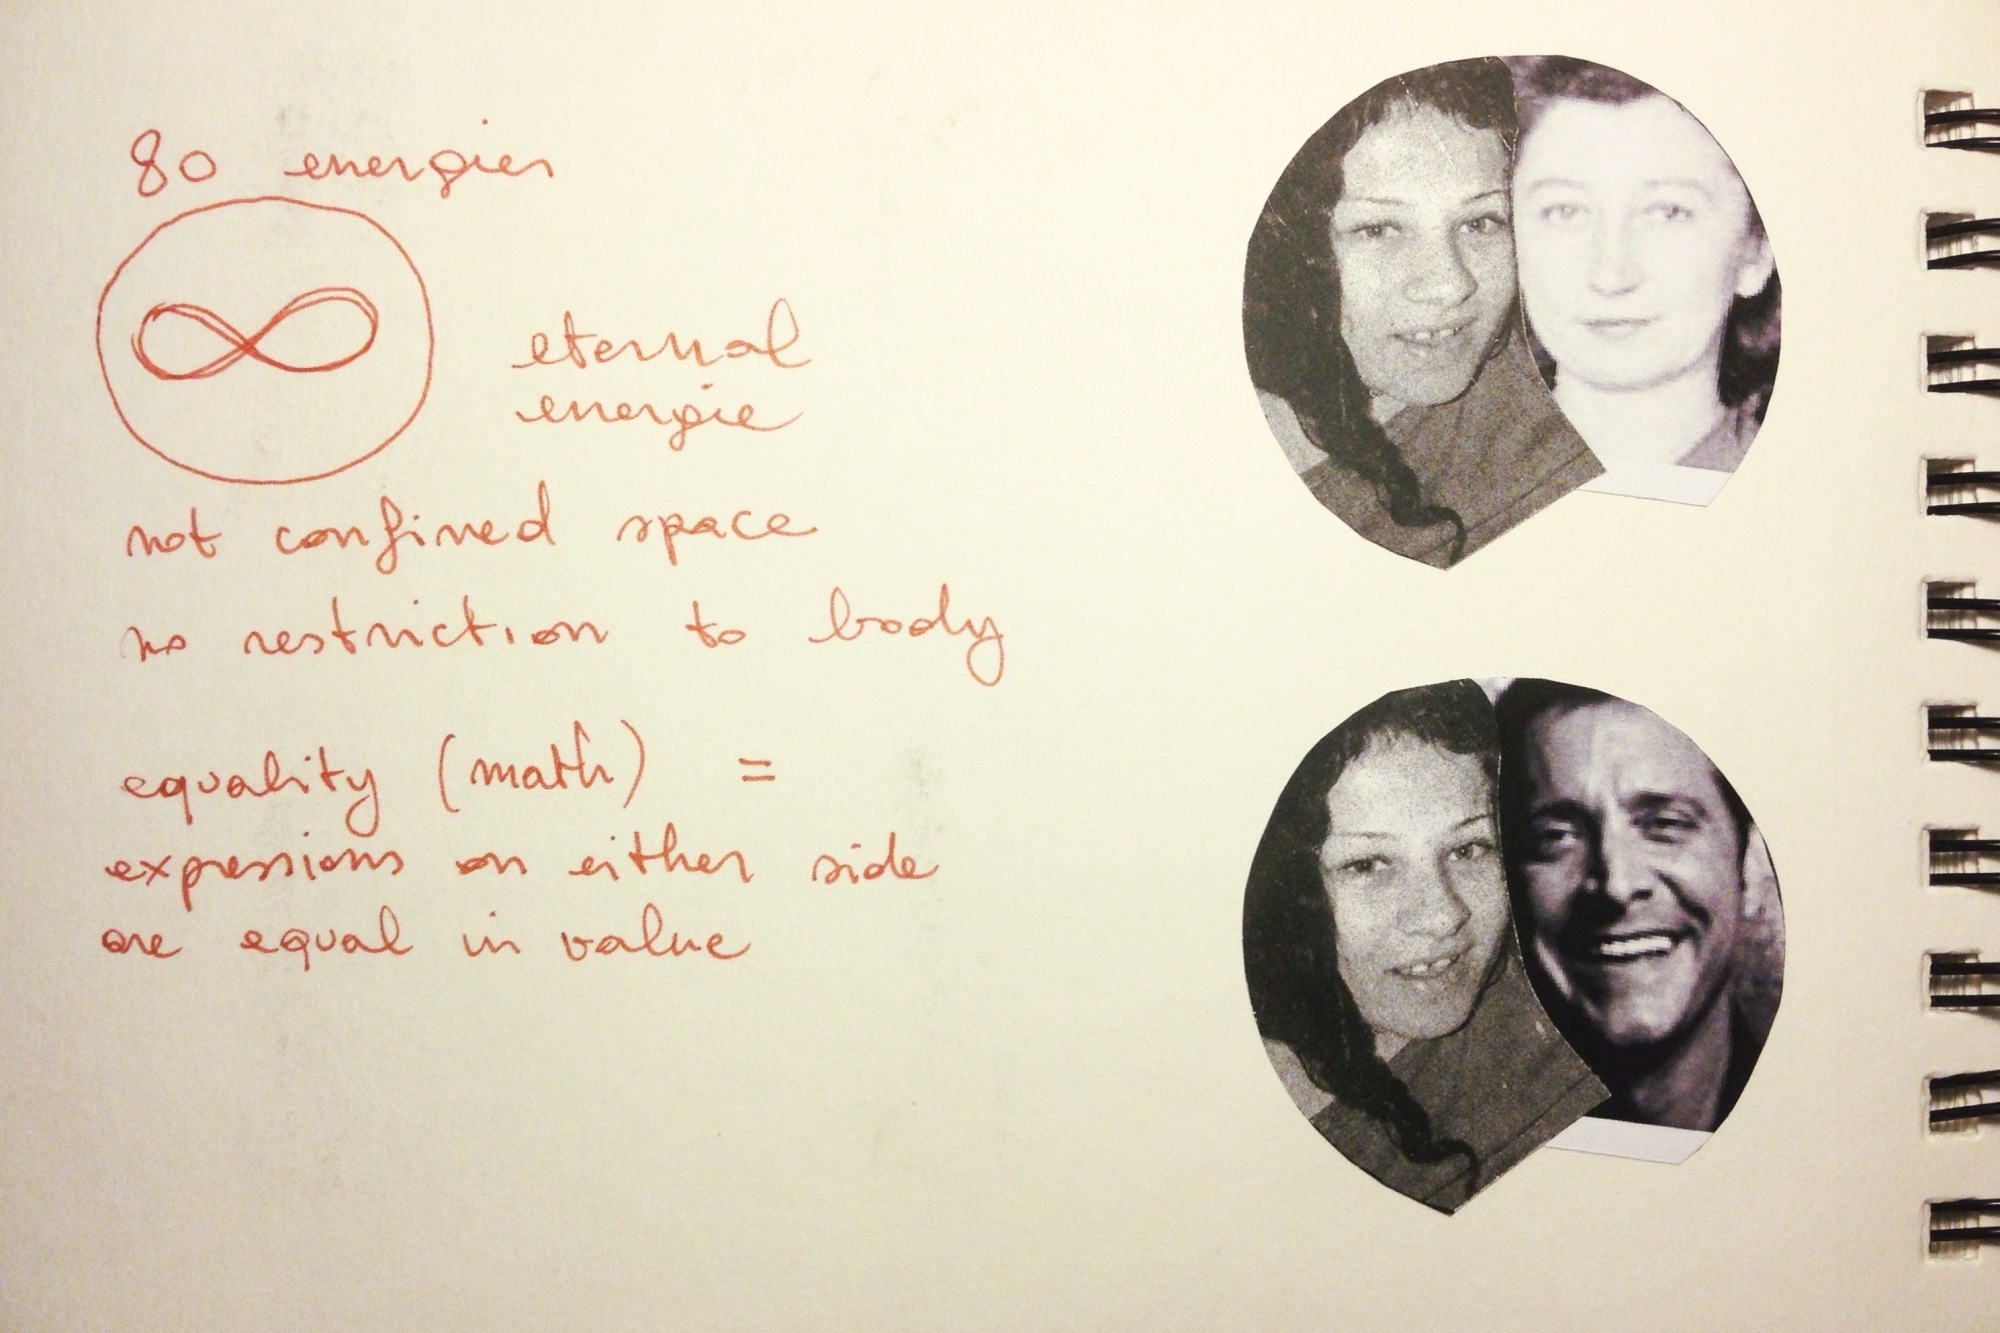 80 energies
eternal
energie
not confined space
no restriction to body
equality (math) =
expressions on either side
are equal in value